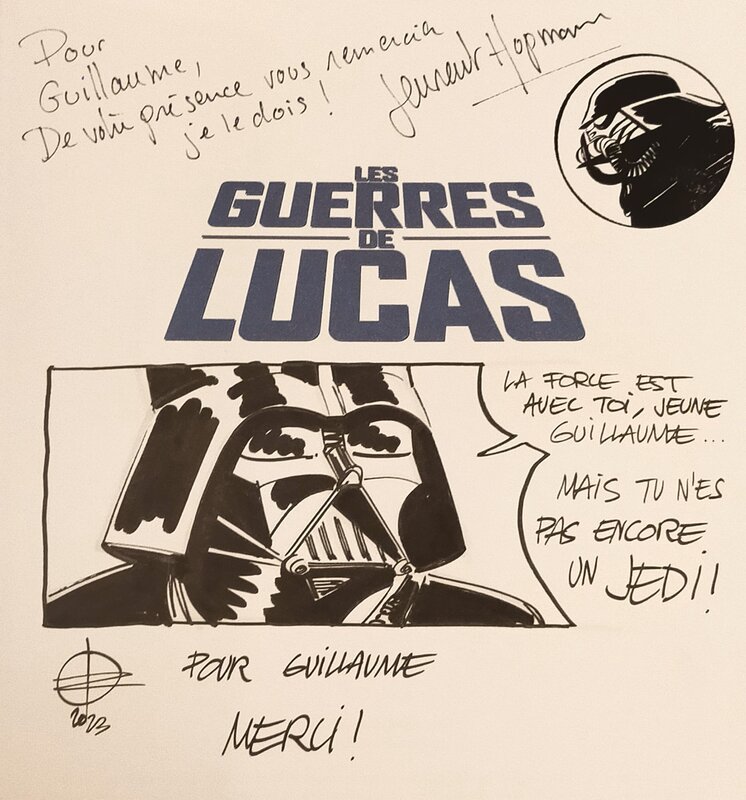 Pour
Guillaume,
De votre présence vous remercier
je le dois !
Laurent Hopmann
LES
GUERRES
DE
LUCAS
LA FORCE EST
AVEC TOI, JEUNE
GUILLAUME...
MAIS TU N'ES
PAS ENCORE
UN JEDI!
2023
POUR GUILLAUME
MERCI!